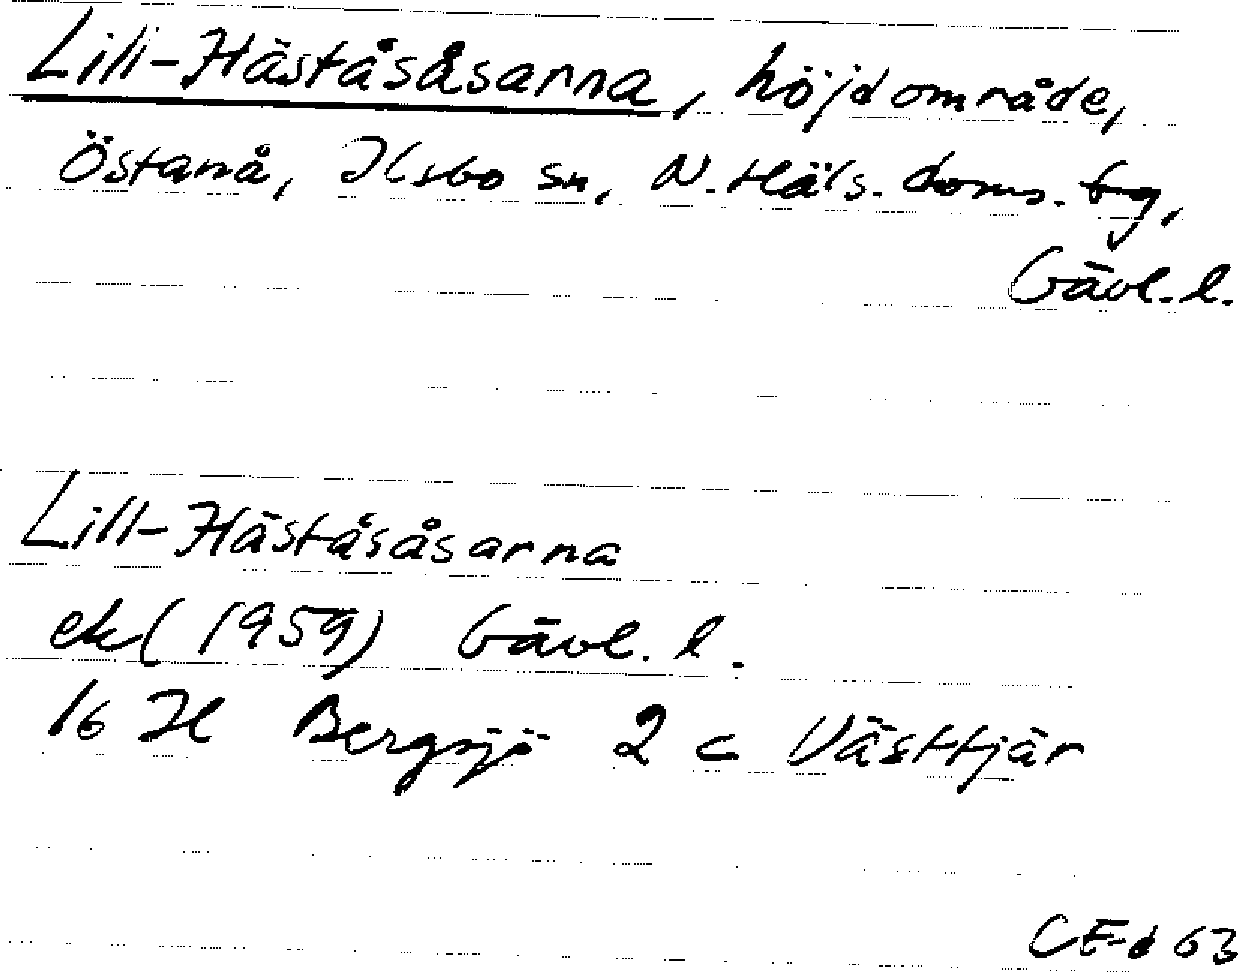 Lill-Häståsåsarna, höjdområde,
Östanå, Ilsbo sn, N. Häls. doms. tg,
Gävl. l.
Lill-Häståsåsarna
ek (1959) Gävl. l.
16 H Bergsjö 2 c Västtjär
CE-d 63